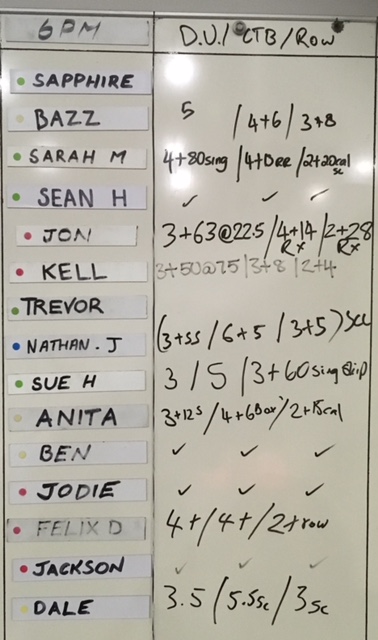 6PM D.U./CTB/Row
SAPPHIRE
BAZZ 5 /4+6/3+8
SARAH M 4+80sing/4+Dee/2+20cal sc
SEAN H ✓ ✓ ✓
JON 3+63@22.5/4+14 Rx/2+28 Rx
KELL 3+50@75/3+8/2+4
TREVOR
NATHAN.J (3+SS/6+5/3+5) Scc
SUE H 3/5/3+60sing Skip
ANITA 3+125/4+6Box/2+15cal
BEN ✓ ✓ ✓
JODIE ✓ ✓ ✓
FELIX D 4+/4+/2+row
JACKSON ✓ ✓ ✓
DALE 3.5/5.5sc/3sc